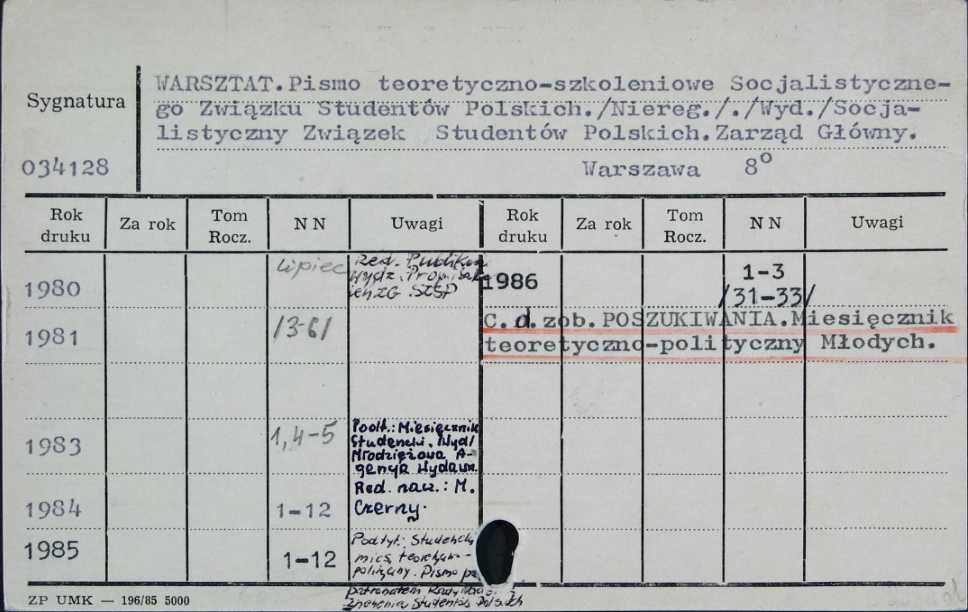 WARSZTAT.Pismo teoretyczno-szkoleniowe Socjalistyczne-
Sygnatura
go Związku Studentów Polskich./Niereg./ ./Wyd./Socja-
listyczny Związek Studentów Polskich.Zarząd Główny.
034128
Warszawa 8°
Rok druku Za rok Tom Rocz. N N Uwagi Rok druku Za rok Tom Rocz. N N Uwagi
1980 Lipiec Red.
ZG SZSP
1986 1-3
/31-33/
1981 /3-6/
C.d.zob.POSZUKIWANIA.Miesięcznik
teoretyczno-polityczny Młodych.
1983 1,4-5 Podt.: Miesięcznik
Studencki. Wyd/
Młodzieżowa A-
gencja Wydawn.
Red. nacz.: M.
1984 1-12 Czerny.
1985 1-12 Podtyt.: Studencki
mies. teoretyczn-
polityczny. Pismo
patronatem
Zrzeszenia Studentów Polskich
ZP UMK — 196/85 5000